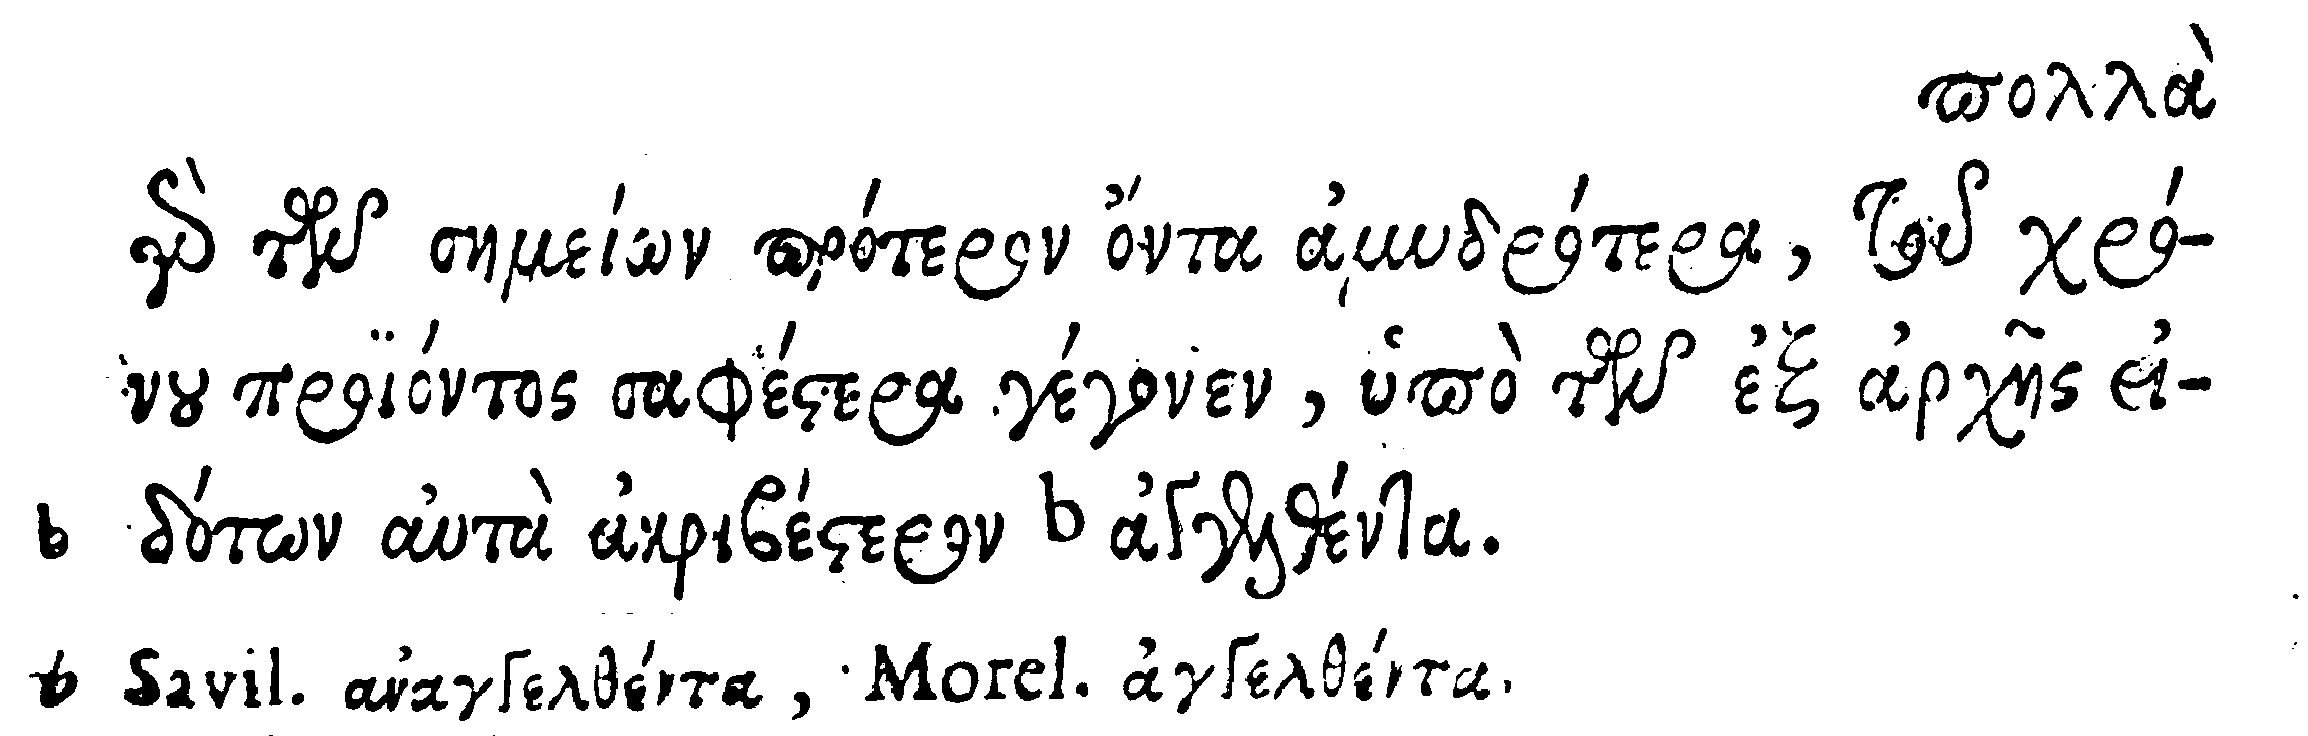 πολλὰ
γὰρ τῶν σημείων πρότερον ὄντα ἀμυδρότερα, τοῦ χρό-
νου προϊόντος σαφέστερα γέγονεν, ὑπὸ τῶν ἐξ ἀρχῆς εἰ-
b δότων αὐτὰ ἀκριβέστερον b ἀγγελθέντα.
b Savil. ἀναγγελθέντα, Morel. ἀγγελθέντα.